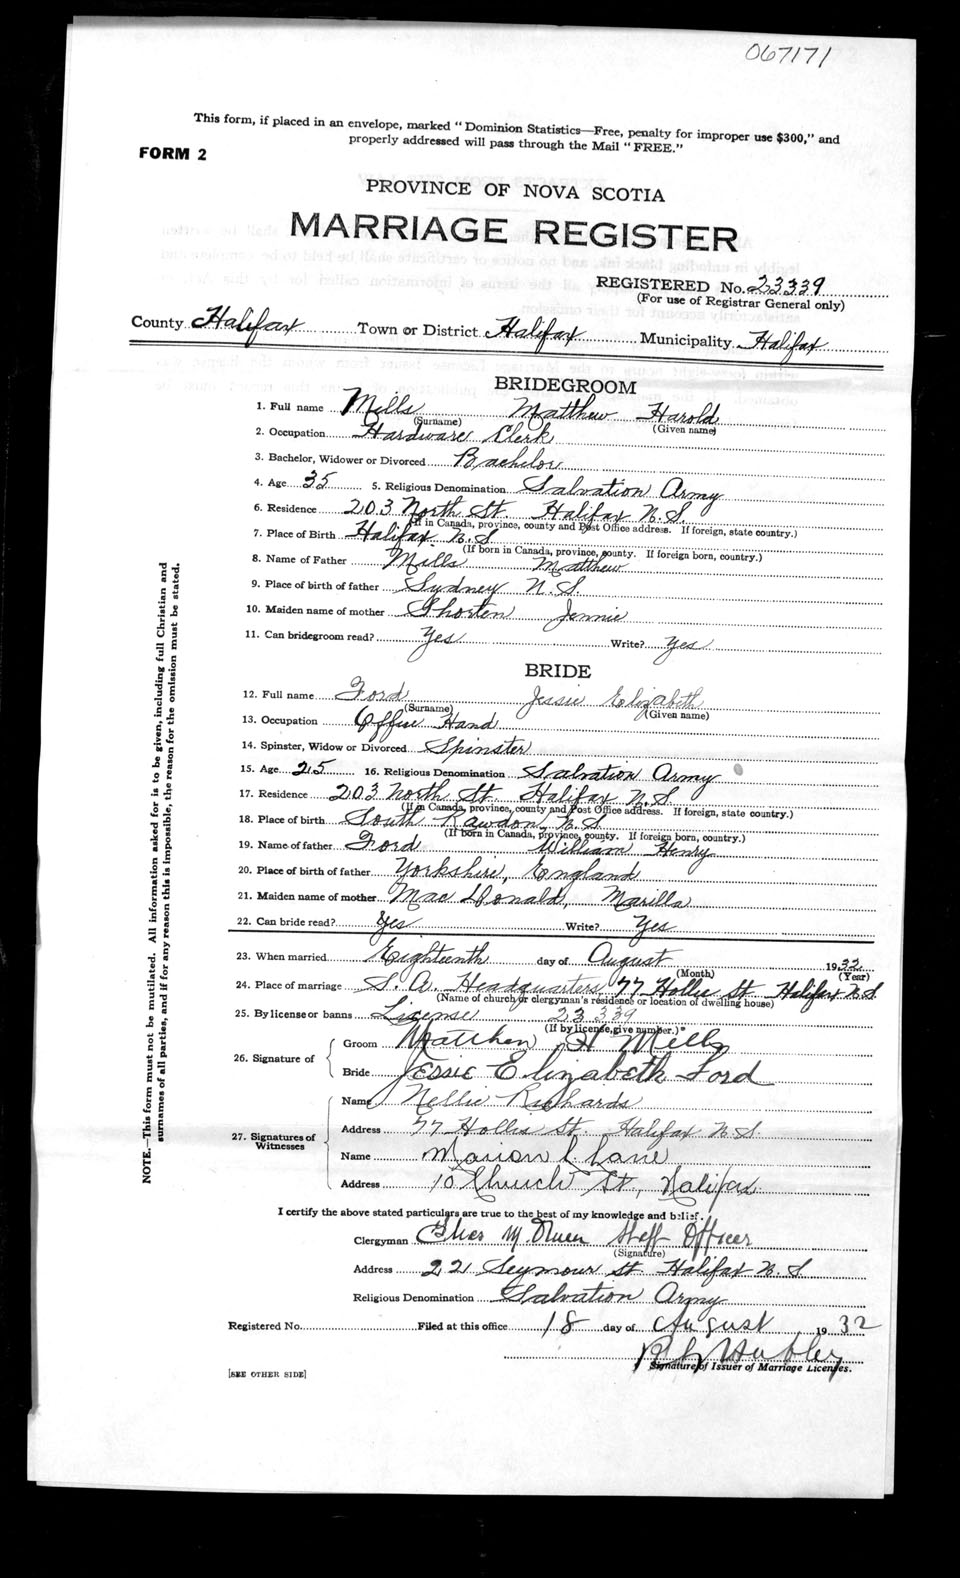 067171
This form, if placed in an envelope, marked "Dominion Statistics—Free, penalty for improper use $300," and
properly addressed will pass through the Mail "FREE."
FORM 2
PROVINCE OF NOVA SCOTIA
MARRIAGE REGISTER
REGISTERED No. 23339
(For use of Registrar General only)
County Halifax Town or District Halifax Municipality Halifax
BRIDEGROOM
1. Full name Mills Matthew Harold
(Surname) (Given name)
2. Occupation Hardware Clerk
3. Bachelor, Widower or Divorced Bachelor
4. Age 35 5. Religious Denomination Salvation Army
6. Residence 203 North St. Halifax N.S.
(If in Canada, province, county and Post Office address. If foreign, state country.)
7. Place of Birth Halifax N.S
(If born in Canada, province, county. If foreign born, country.)
8. Name of Father Mills Matthew
9. Place of birth of father Sydney N.S.
10. Maiden name of mother Shorten Jennie
11. Can bridegroom read? Yes Write? Yes
BRIDE
12. Full name Ford Jessie Elizabeth
(Surname) (Given name)
13. Occupation Office Hand
14. Spinster, Widow or Divorced Spinster
15. Age 25 16. Religious Denomination Salvation Army
17. Residence 203 North St. Halifax N.S.
(If in Canada, province, county and Post Office address. If foreign, state country.)
18. Place of birth South Rawdon N.S.
(If born in Canada, province, county. If foreign born, country.)
19. Name of father Ford William Henry
20. Place of birth of father Yorkshire, England
21. Maiden name of mother Mac Donald, Marilla
22. Can bride read? Yes Write? Yes
23. When married Eighteenth day of August 1932
(Month) (Year)
24. Place of marriage S. A. Headquarters 77 Hollis St Halifax N.S
(Name of church or clergyman's residence or location of dwelling house)
25. By license or banns License 23339
(If by license, give number.)
26. Signature of Groom Matthew H Mills
Bride Jessie Elizabeth Ford
27. Signatures of Witnesses Name Nellie Richards
Address 77 Hollis St. Halifax N.S.
Name Marion L. Lane
Address 10 Church St, Halifax
I certify the above stated particulars are true to the best of my knowledge and belief.
Clergyman M. Staff Officer
(Signature)
Address 221 Seymour St Halifax N.S
Religious Denomination Salvation Army
Registered No. Filed at this office 18 day of August 1932
Hubley
Signature of Issuer of Marriage Licenses.
[SEE OTHER SIDE]
NOTE.—This form must not be mutilated. All information asked for is to be given, including full Christian and
surnames of all parties, and if for any reason this is impossible, the reason for the omission must be stated.